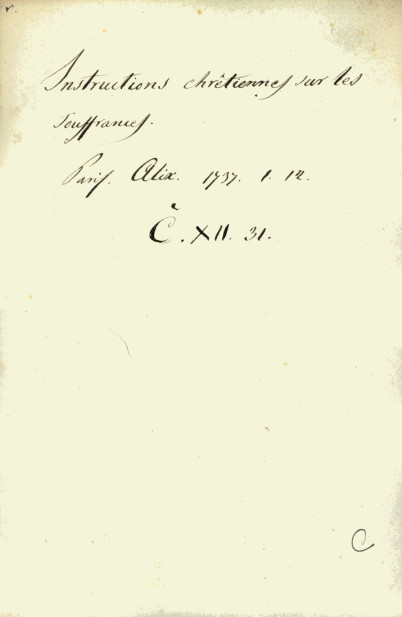 v.
Instructions chrêtiennes sur les
souffrances.
Paris. Alix. 1737. 1. 12.
Č. XII. 31.
C